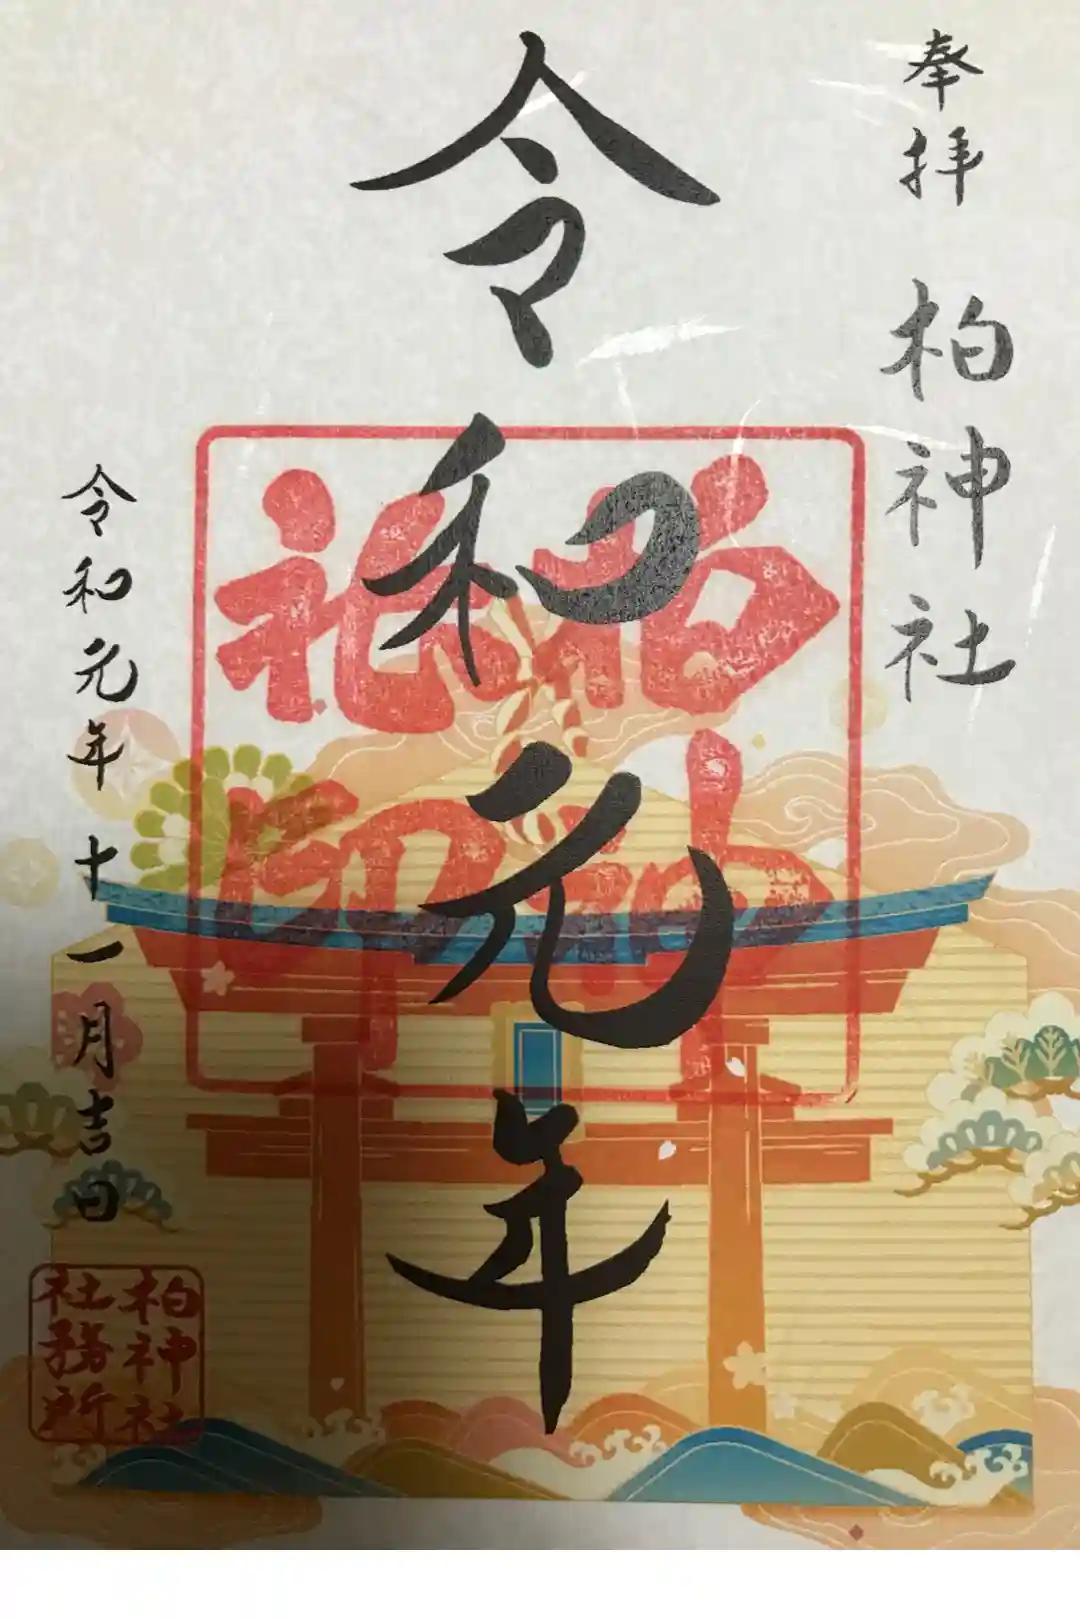 奉拝
柏神社
令和元年
令和元年十一月吉日
柏神社印
柏神社
社務所